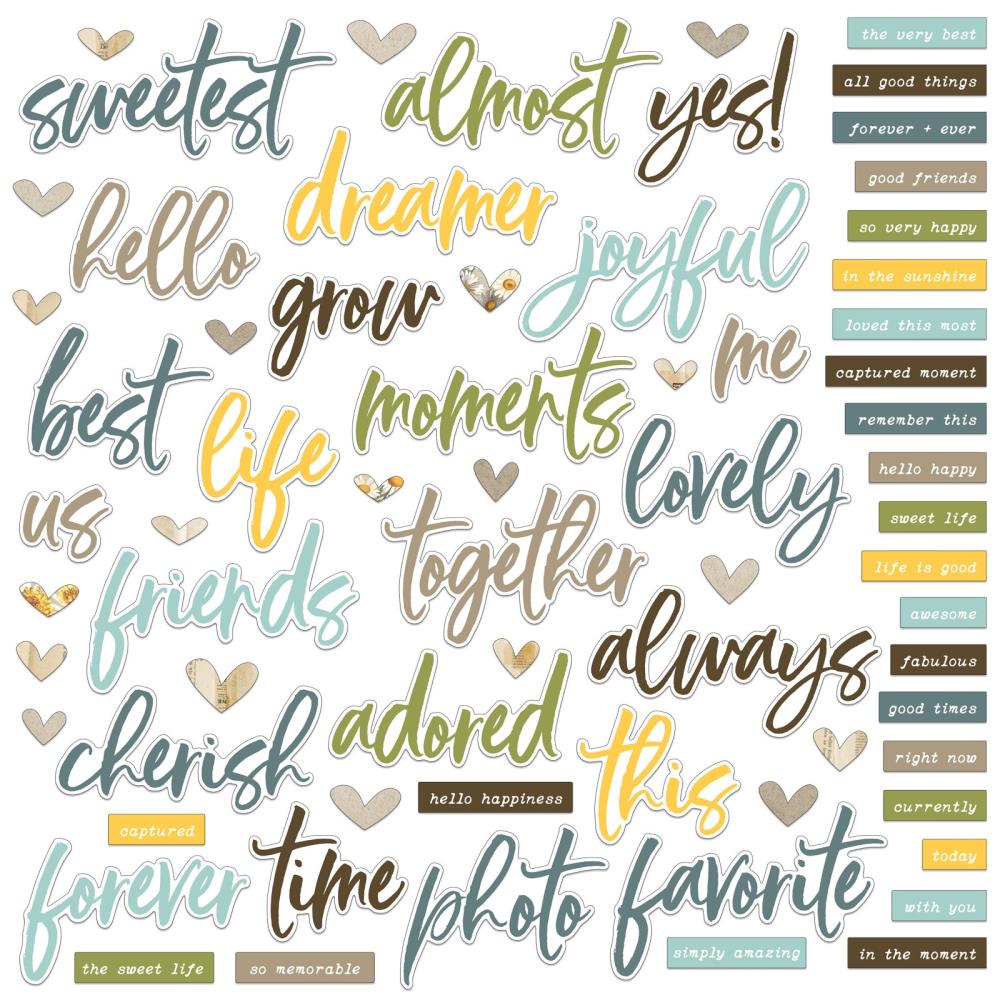 sweetest
almost
yes!
dreamer
hello
joyful
grow
me
best
moments
life
lovely
us
together
friends
always
adored
cherish
this
hello happiness
captured
forever
time
photo
favorite
simply amazing
the sweet life
so memorable
the very best
all good things
forever + ever
good friends
so very happy
in the sunshine
loved this most
captured moment
remember this
hello happy
sweet life
life is good
awesome
fabulous
good times
right now
currently
today
with you
in the moment